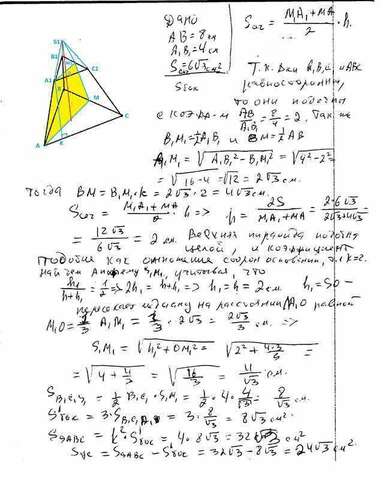 Дано
AB = 8 см
A₁B₁ = 4 см
Sсеч = 6√3 см²
Sбок
S = (MA₁ + MA)/2 · h.
Т.к. ΔΔ A₁B₁C₁ и ABC
равносторонние,
то они подобны
с коэф-м AB/A₁B₁ = 8/4 = 2. Так же
B₁M₁ = ½A₁B₁ и BM = ½AB
A₁M₁ = √(A₁B₁² − B₁M₁²) = √(4² − 2²) =
= √(16 − 4) = √12 = 2√3 см.
тогда BM = B₁M₁ · k = 2√3 · 2 = 4√3 см.
S = (M₁A₁ + MA)/2 · h => h = 2S/(M₁A₁ + MA) = 2·6√3/(2√3+4√3) =
= 12√3/6√3 = 2 см. Верхняя пирамида подобна
целой, и коэффициент
подобия как отношение сторон основания, т.е. k = 2.
найдем апофему S₁M₁, учитывая, что
h₁/(h+h₁) = 1/2 => 2h₁ = h + h₁ => h₁ = h = 2 см. h₁ = SO –
пересекает на расстоянии M₁O равной
M₁O = 1/3 A₁M₁ = 1/3 · 2√3 = 2√3/3 см. =>
S₁M₁ = √(h₁² + OM₁²) = √(2² + 4·3/9) =
= √(4 + 4/3) = √(16/3) = 4/√3 см.
= ½ B₁C₁ · S₁M₁ = ½ · 4 · 4/√3 = 8/√3 см²
S¹бок = 3 · = 3 · 8/√3 = 8√3 см².
= k² · S¹бок = 4 · 8√3 = 32√3 см²
− S¹бок = 32√3 − 8√3 = 24√3 см².
S₁
B₁
C₁
A₁
K
M
C
A
B